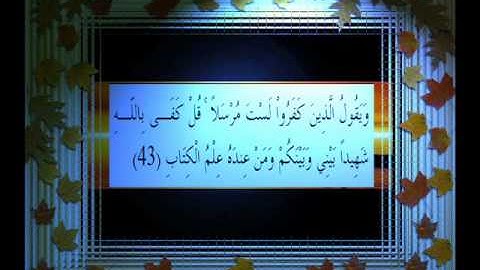 وَيَقُولُ الَّذِينَ كَفَرُواْ لَسْتَ مُرْسَلاً ۚ قُلْ كَفَـــى بِاللّـــهِ
شَهِيداً بَيْنِي وَبَيْنَكُمْ وَمَنْ عِندَهُ عِلْمُ الْكِتَابِ (43)